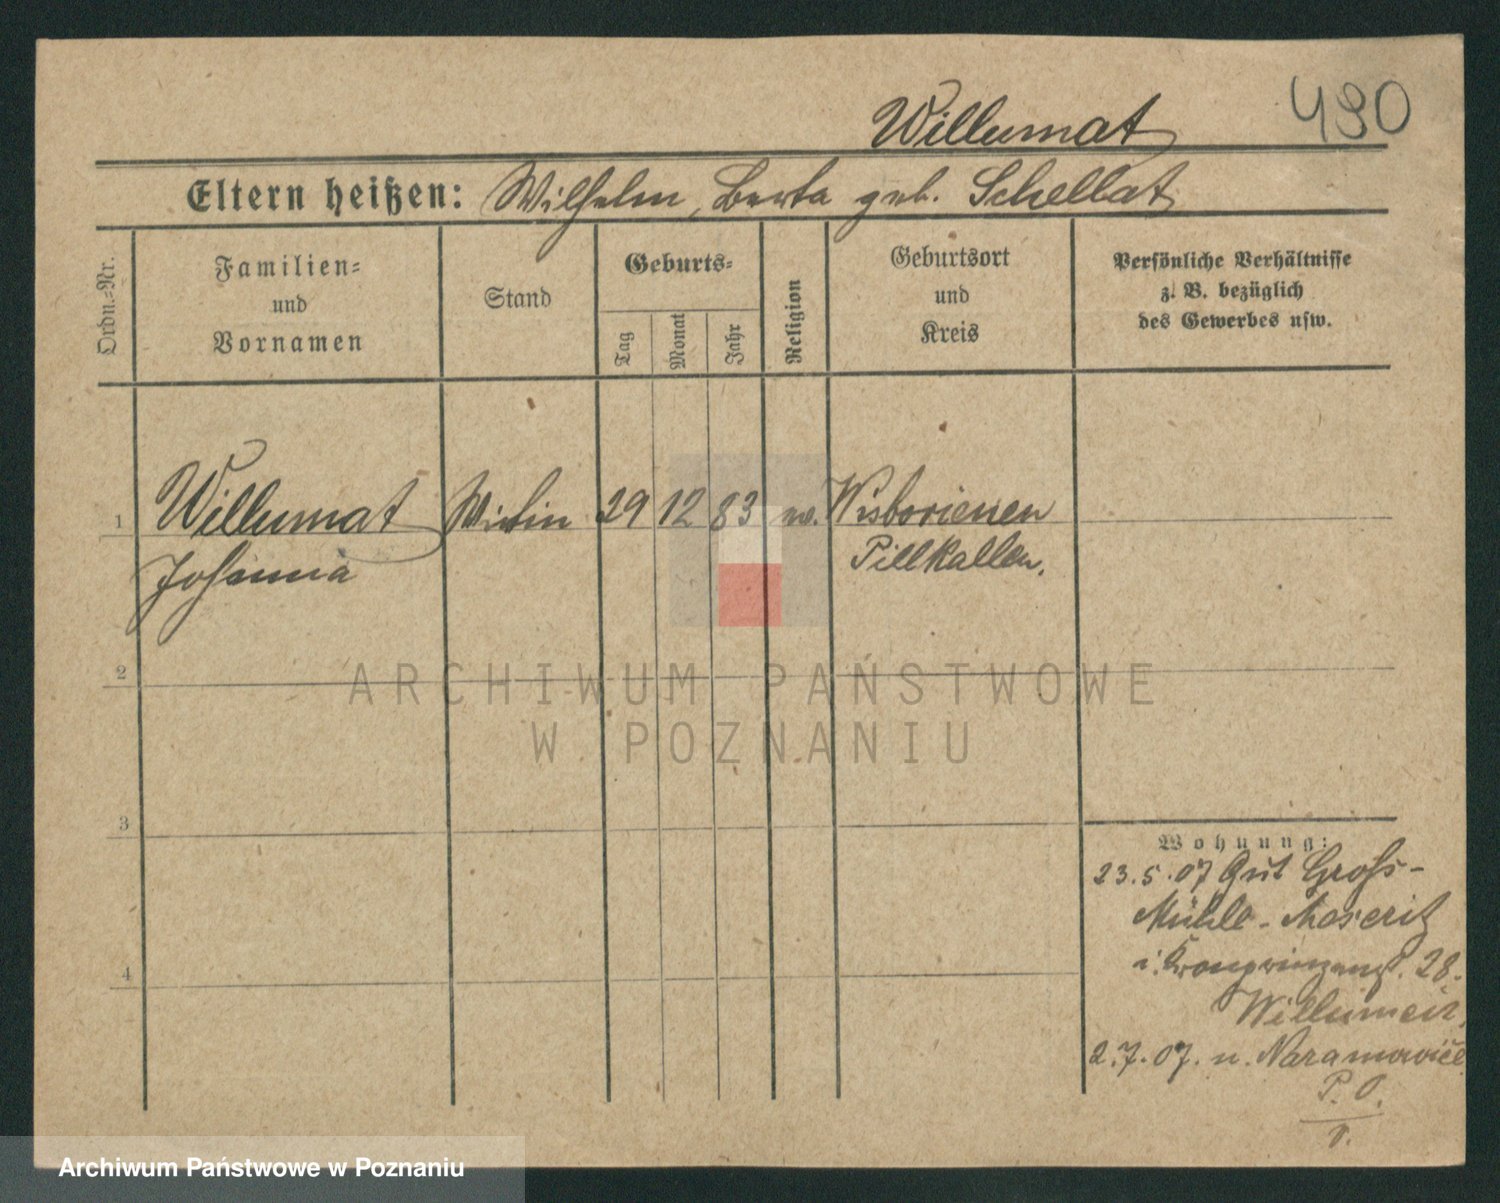 490
Willumat
Eltern heißen: Wilhelm, Berta geb. Schellat
Ordn.-Nr.
Familien-
und
Vornamen
Stand
Geburts-
Tag
Monat
Jahr
Religion
Geburtsort
und
Kreis
Persönliche Verhältnisse
z. B. bezüglich
des Gewerbes usw.
1 Willumat Wirtin 29 12 83 ev. Wisborienen
Johanna Pillkallen.
2
3
4
Wohnung:
23.5.07 Gut Groß-
Mühle - Moseritz
i. Kronprinzenst. 28.
Willumeit,
2.7.07. n. Naramowice
P. O.
ARCHIWUM PAŃSTWOWE
W POZNANIU
Archiwum Państwowe w Poznaniu